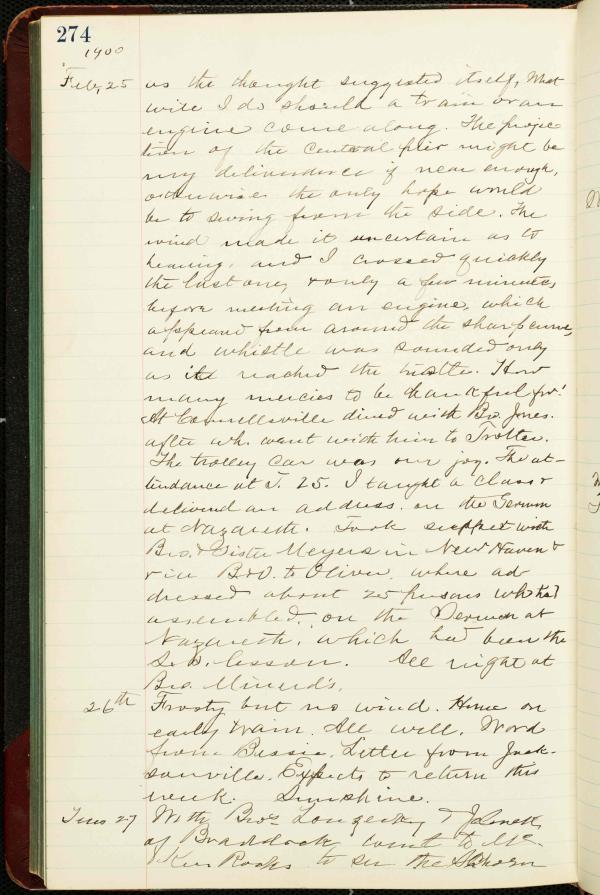 274
1900
Feb, 25 as the thought suggested itself, What
will I do should a train or an
engine come along. The projec-
tion of the central pier might be
my deliverance if near enough,
otherwise the only hope would
be to swing from the side. The
wind made it uncertain as to
hearing, and I crossed quickly
the last one, & only a few minutes,
before meeting an engine, which
appeared from around the sharp curve,
and whistle was sounded only
as it reached the trestle. How
many mercies to be thankful for!
At Connellsville dined with Bro. Jones.
after wh. went with him to Trotter.
The trolley car was our joy. The at-
tendance at T. 25. I taught a class &
delivered an address. on the Sermon
at Nazareth. Took supper with
Bro. & Sister Meyers in New Haven &
via B&O. to Oliver, where ad
dressed about 25 persons who had
assembled, on the Sermon at
Nazareth, which had been the
S. S. lesson. All night at
Bro. Minerd's.
26th Frosty but no wind. Home on
early train. All well. Word
from Bessie. Letter from Jack-
sonville. Expects to return this
week. Sunshine.
Tues 27 With Bros Longecky &
of Braddock, went to Mc-
Kees Rocks to see the